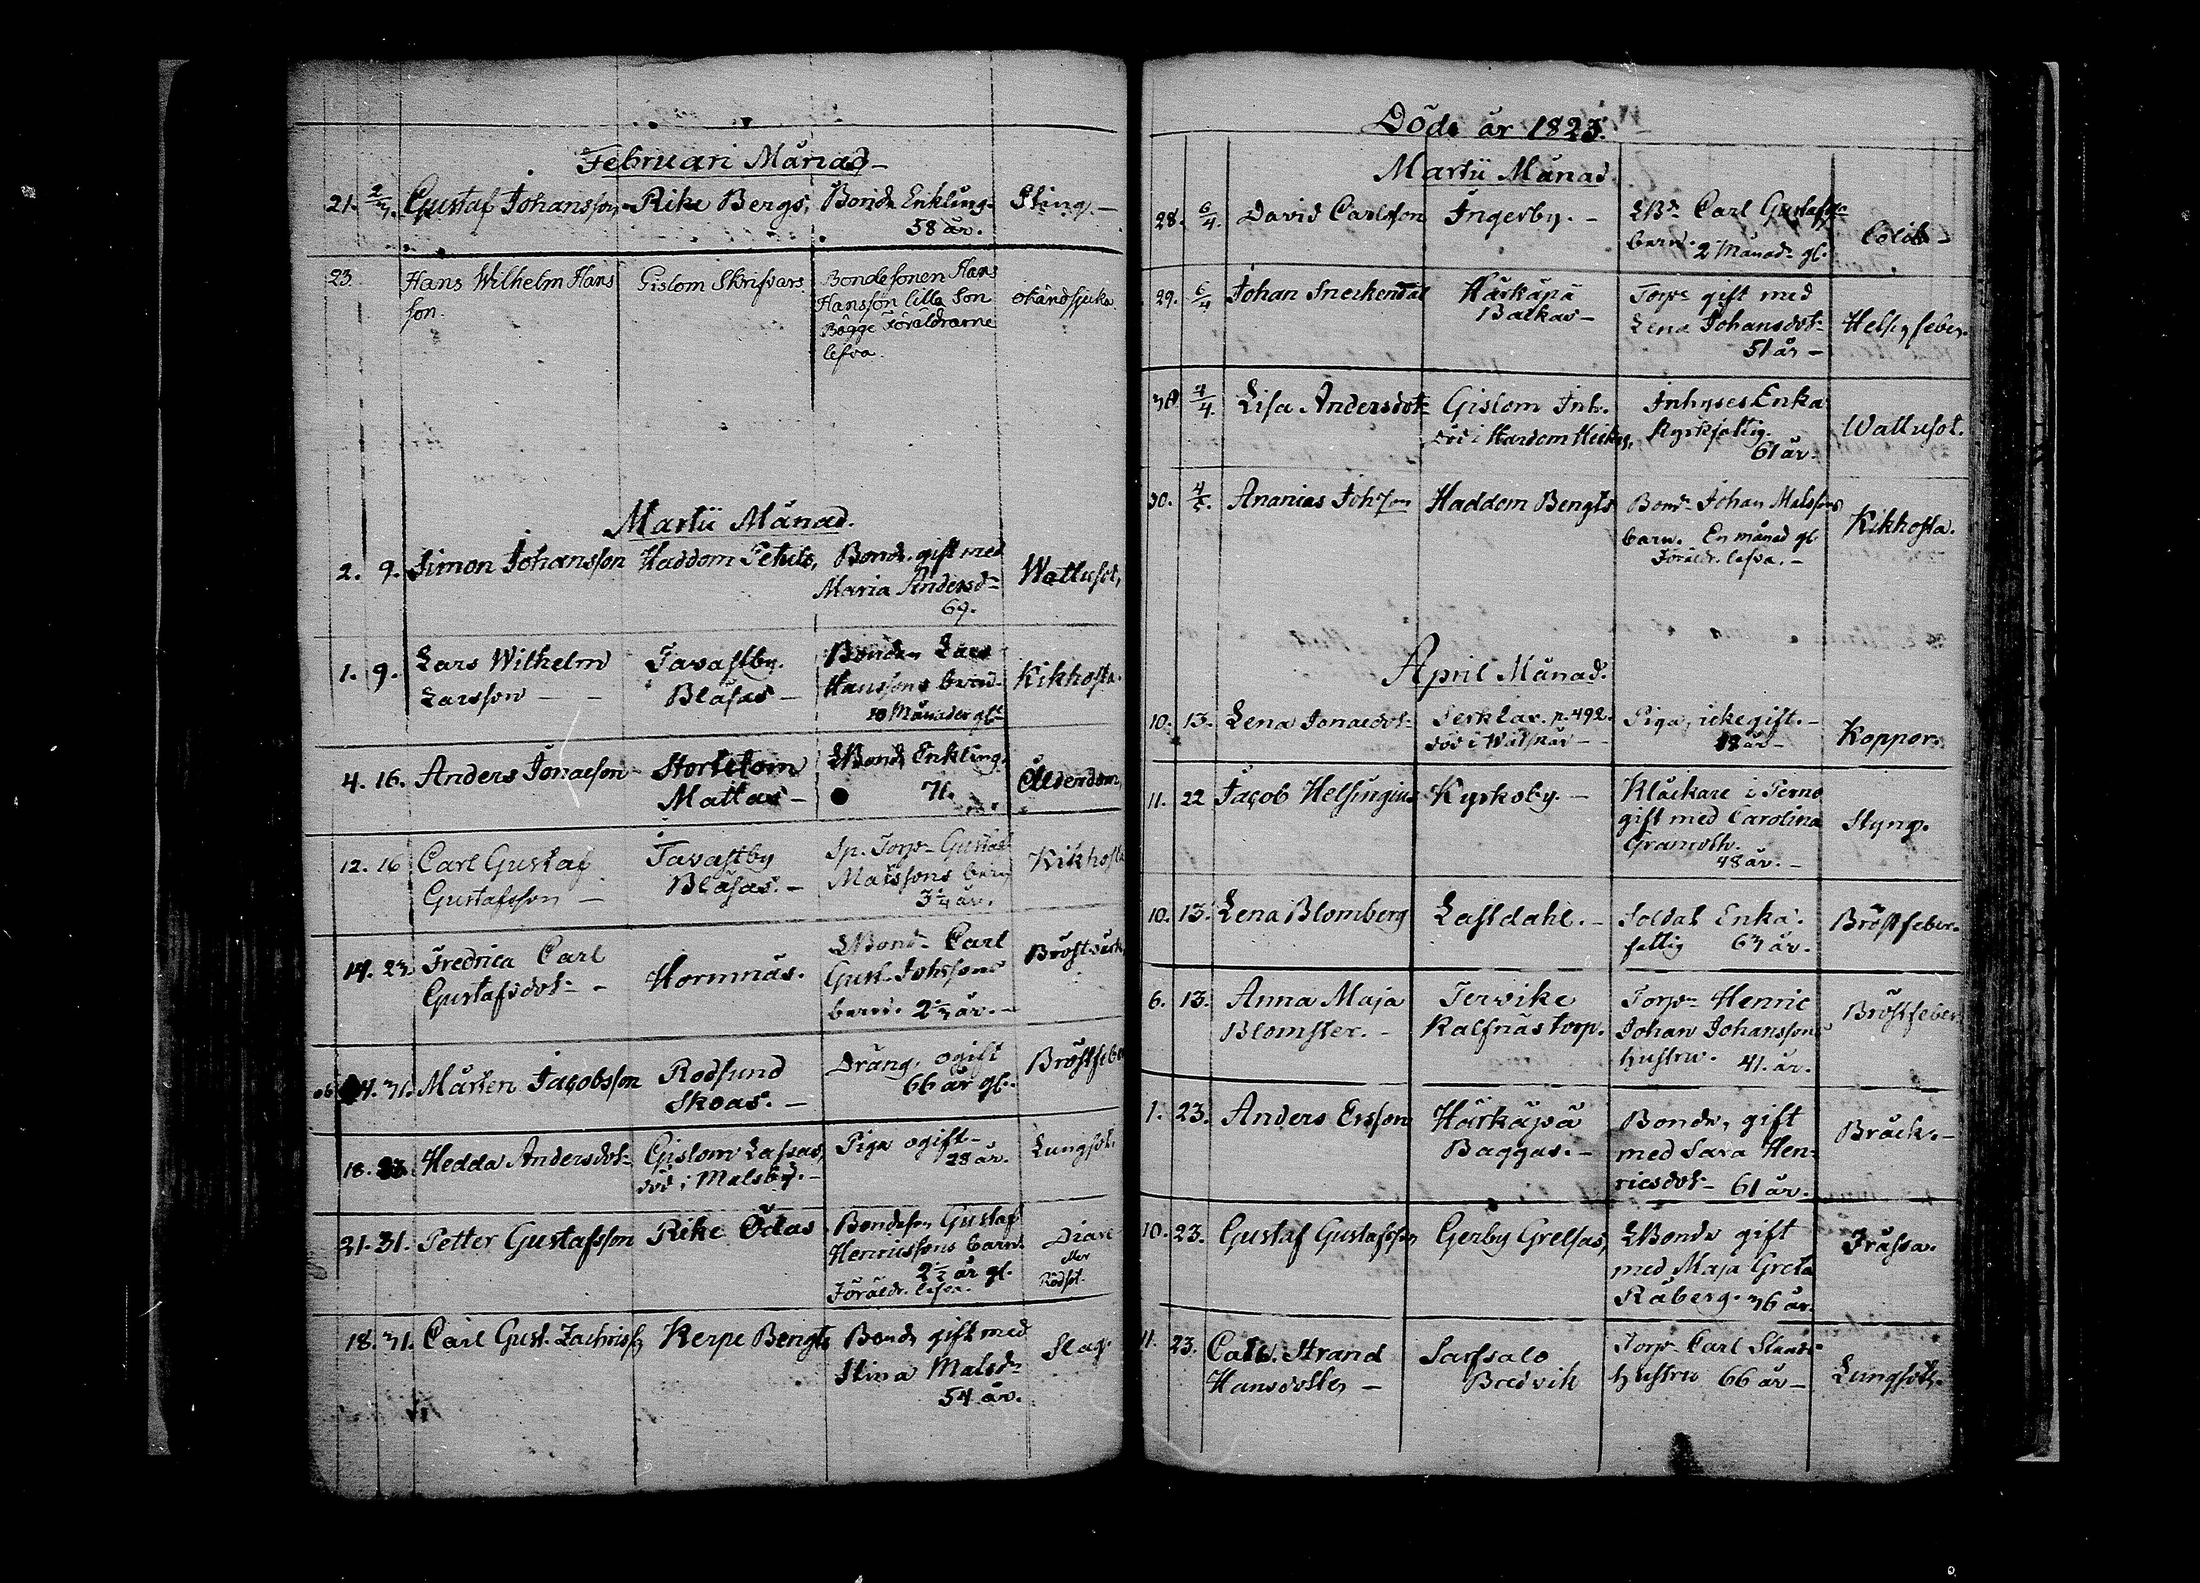 Februari Månad
21. 2/3. Gustaf Johansson Rike Bergs, Bonde Enkling. Sting.
58 år.
23. Hans Wilhelm Hans Gislom Skrifvars Bondesonen Hans okändsjuka
son. Hansson lilla Son
Bägge Föräldrarne
lefva.
Martii Månad.
2. 9. Simon Johansson Haddom Bonde, gift med Wattusot,
Maria Andersd-
69.
1. 9. Lars Wilhelm Tavastby Bonden Lars Kikhosta.
Larsson Blåsas Hanssons barn
10 Månader gl.
4. 16. Anders Jonasson Mattas Bonde Enkling. Ålderdom,
71.
12. 16 Carl Gustaf Tavastby Sp. Torp. Gustaf Kikhosta
Gustafsson Blåsas. Matssons barn
3 1/4 år.
14. 23 Fredrica Carl Hormnäs. Bond- Carl Bröstvärk
Gustafsdot- Gust. Johssons
barn. 2 år.
31. Mårten Jacobsson Rodsund Dräng, ogift Bröstfeber
Skoas. 66 år gl.
18. 23 Hedda Andersdot- Gislom Lassas, Piga ogift- Lungsot.
död i Malsby. 28 år.
21. 31. Petter Gustafsson Rike Ödas Bondeson Gustaf Diare
Henricssons barn eller
2 1/2 år gl. Rödsot.
Föräldr. lefva.
18. 31. Carl Gust. Zachriss Kerpe Bengts Bonde gift med Slag.
Stina Matsd-
54 år.
Döde år 1823.
Martii Månad.
28. 6/4. David Carlsson Ingerby. Bd. Carl Gustafss
barn. 2 Månad- gl.
29. 6/4 Johan Sneckendal Härkäpä Torp- gift med
Balkas Lena Johansdot- Helsig feber.
51 år
30 4/4. Lisa Andersdot- Gislom Inh. Inhyses Enka Wattusot.
död i Hardom Kyrkfattig.
61 år.
30. 4/5. Ananias Johsson Haddom Bengts Bond- Johan Matssons Kikhosta.
barn. En månad gl.
Föräldr. lefva.
April Månad.
10. 13. Lena Jonaedot- Serklax. p. 492. Piga, icke gift. Koppor.
död i 18 år
11. 22 Jacob Helsingius Kyrkoby. Klåckare i Perno Styng.
gift med Carolina
Granroth.
48 år.
10. 13. Lena Blomberg Lastdahl. Soldat Enka. Bröstfeber.
fattig 63 år.
6. 13. Anna Maja Tervike Torp- Henric Bröstfeber
Blomster. Kalfnäs torp. Johan Johanssons
hustru. 41. år.
1. 23. Anders Ersson Härkäpä Bonde, gift Bråck.
Baggas. med Sara Hen-
ricsdot- 61 år.
10. 23. Gustaf Gustafsson Gerby Grelsas, Bonde gift Frassa.
med Maja Greta
Råberg. 36 år.
11. 23. Cath. Strand Sarfsalo Torp- Carl Lungsot.
Hansdotter Bredvik hustru 66 år